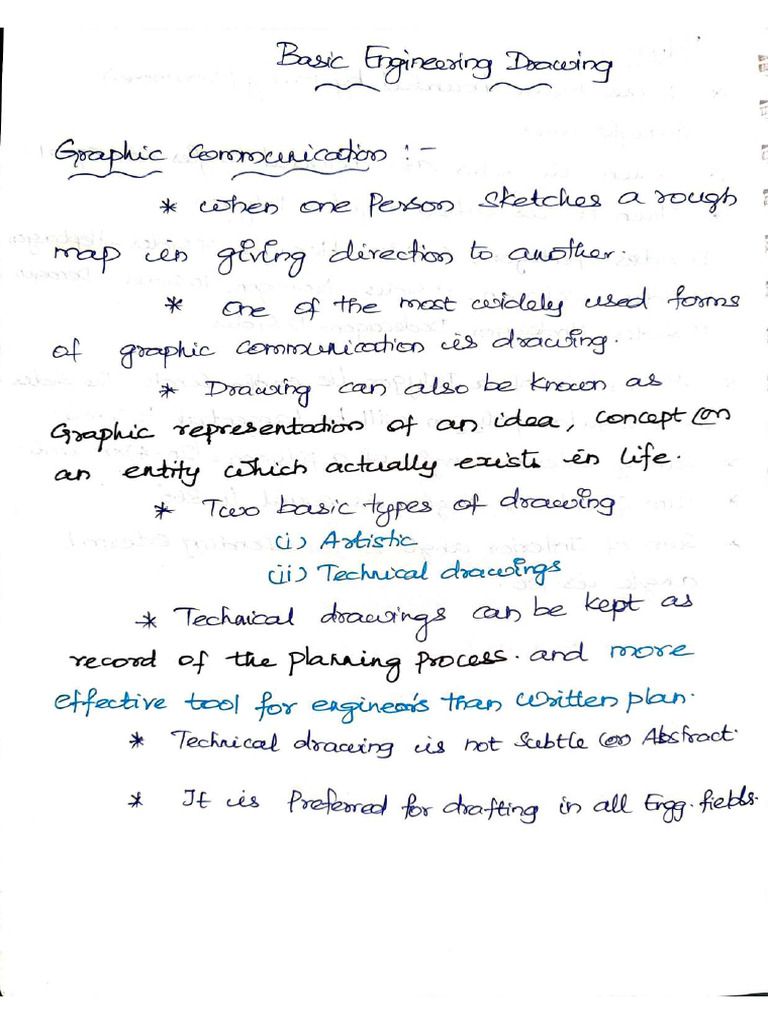 Basic Engineering Drawing
Graphic Communication :-
* When one Person sketches a rough
map in giving direction to another.
* One of the most widely used forms
of graphic communication is drawing.
* Drawing can also be known as
Graphic representation of an idea, concept (or)
an entity which actually exists in life.
* Two basic types of drawing
(i) Artistic
(ii) Technical drawings
* Technical drawings can be kept as
record of the planning process. and more
effective tool for engineers than written plan.
* Technical drawing is not Subtle (or) Abstract.
* It is Preferred for drafting in all Engg. fields.